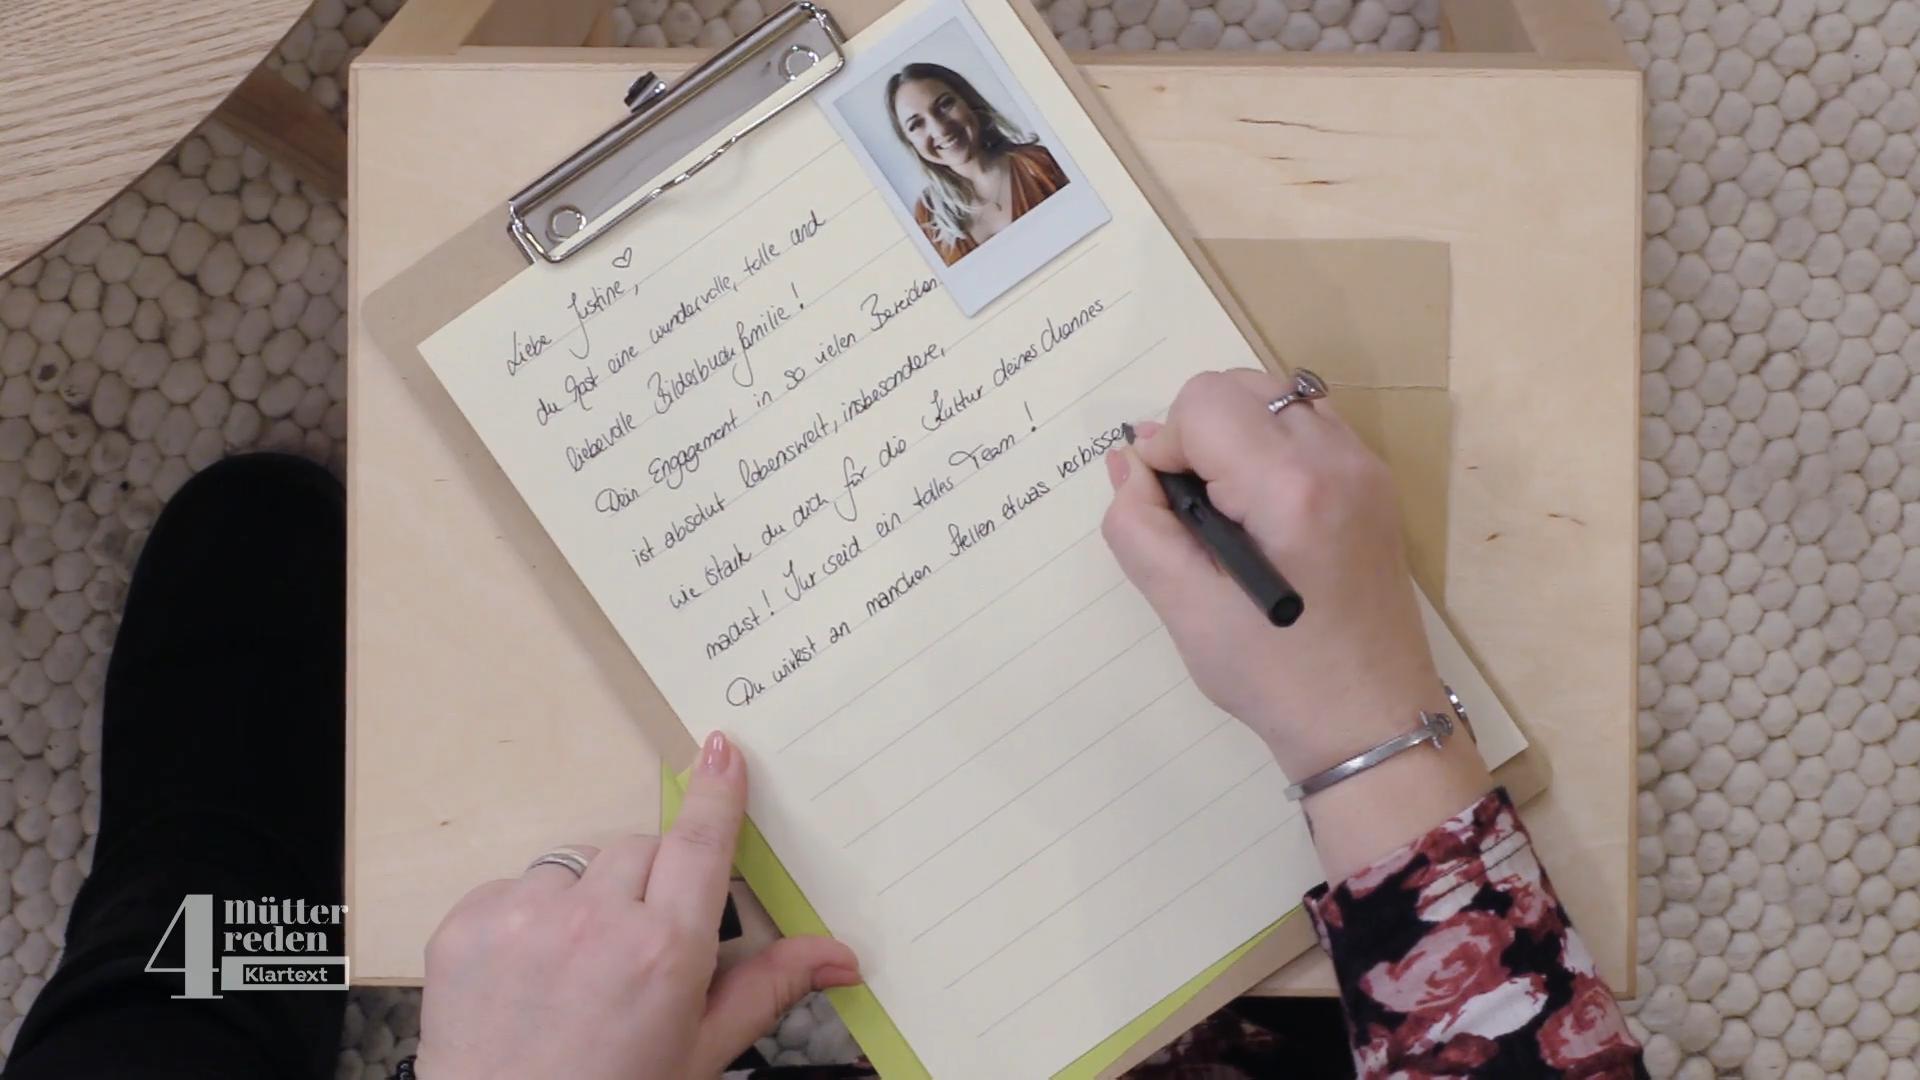 Liebe Justine, ♡
du hast eine wundervolle, tolle und
liebevolle Bilderbuchfamilie!
Dein Engagement in so vielen Bereichen
ist absolut lobenswelt, insbesondere,
wie stark du dich für die Kultur deines Mannes
machst! Ihr seid ein tolles Team!
Du wirkst an manchen Stellen etwas verbissen
4 mütter
reden
Klartext